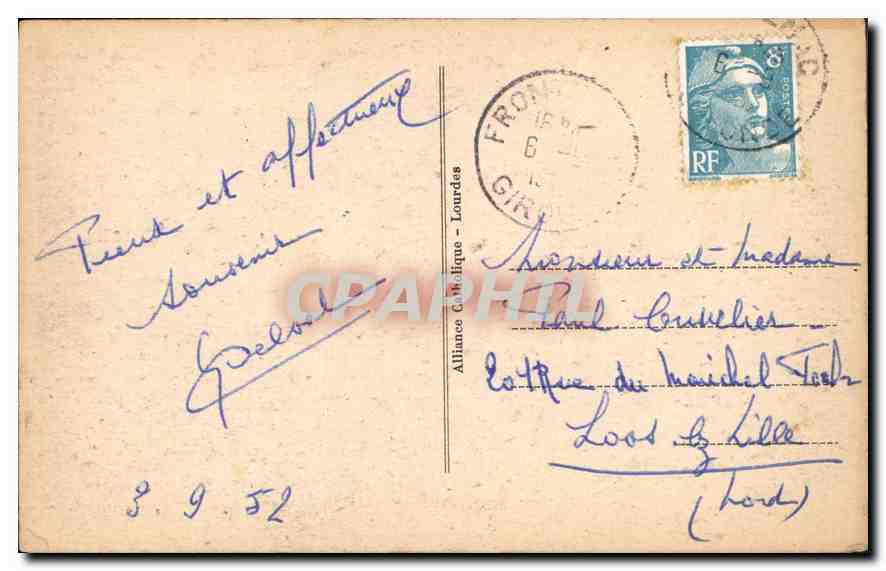 Pieux et affectueux
souvenir
3.9.52
Alliance Catholique - Lourdes
CPAPHIL
FRON
GIR
8F
POSTES
RF
Monsieur et Madame
Paul Cuvelier
Rue du Maréchal Foch
Loos lez Lille
(Nord)